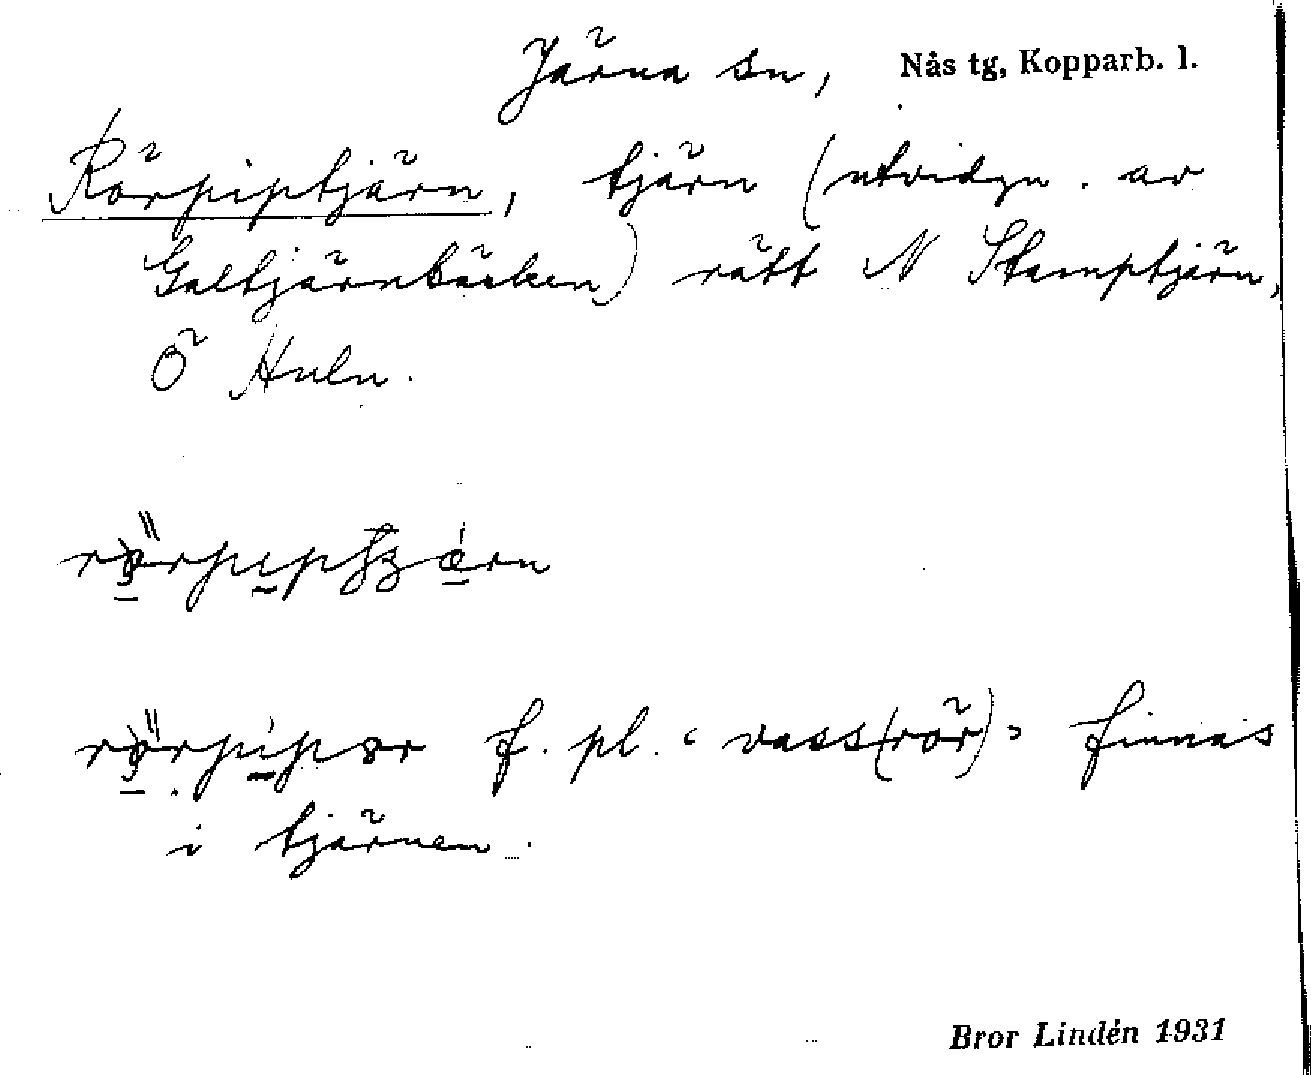 Järna sn, Nås tg, Kopparb. l.
Rörpiptjärn, tjärn (utvidgn. av
Galtjärnbäcken) rätt N Stamptjärn,
Ö Huln.
f. pl. ‹ vass(rör) › finnas
i tjärnen.
Bror Lindén 1931